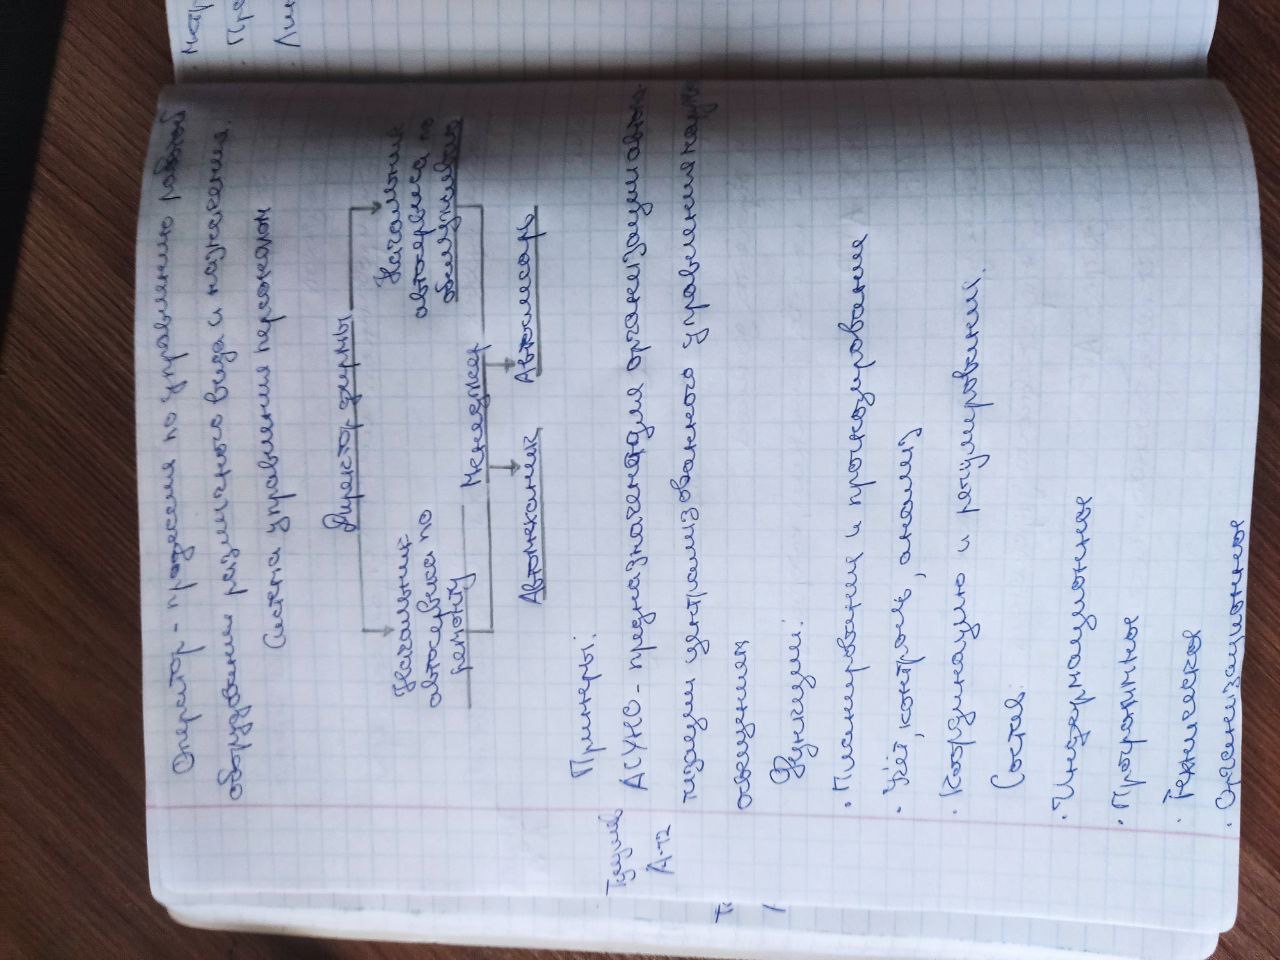 Оператор - профессия по управлению работой
оборудования различного вида и назначения.
Система управления персоналом
Директор фирмы
Начальник
автосервиса по
ремонту
Начальник
автосервиса по
обслуживанию
Менеджер
Автомеханик
Автослесарь
Примеры:
АСУНО - предназначена для организации автома-
тизации централизованного управления наружн
освещением
Функции:
· Планирование и прогнозирование
· Учёт, контроль, анализ
· Координацию и регулирования.
Состав:
· Информационное
· Программное
· Техническое
· Организационное
А-12